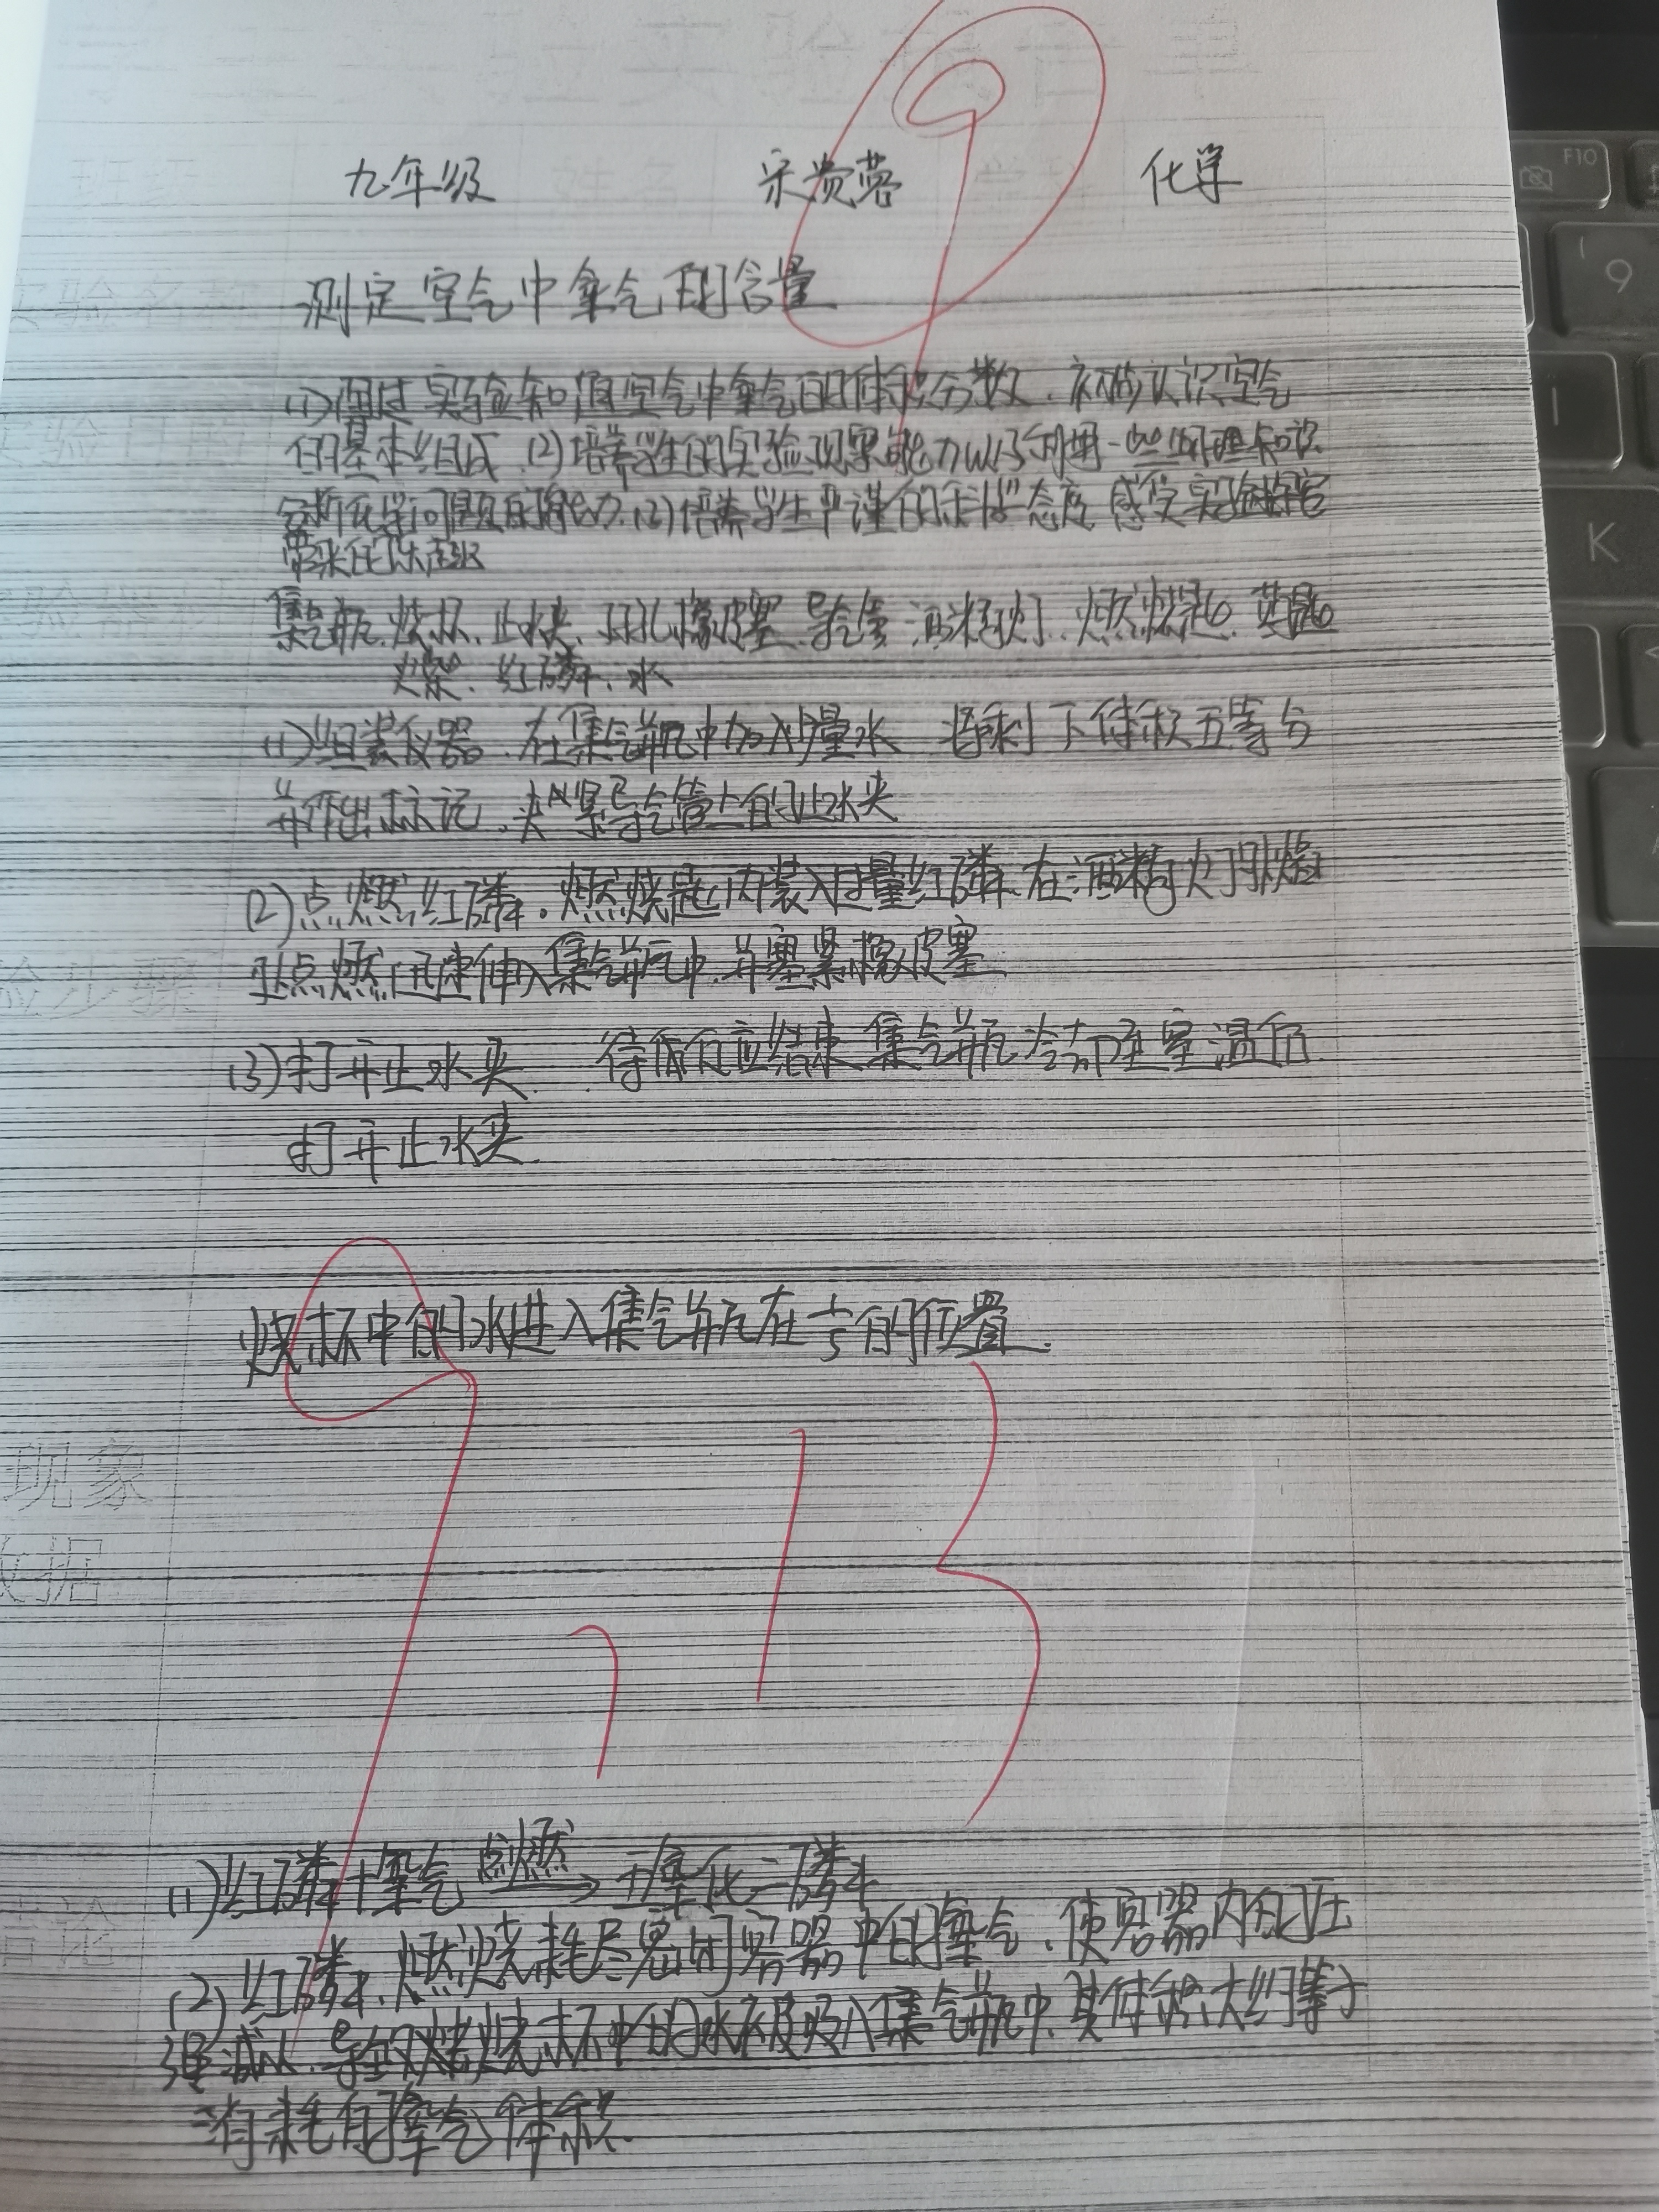 九年级 宋贵蓉 化学
测定空气中氧气的含量
(1)通过实验知道空气中氧气的体积分数,初步认识空气
的基本组成.(2)培养学生的实验观察能力以及利用一些物理知识
分析化学问题的能力.(3)培养学生严谨的科学态度 感受实验探究
带来的乐趣
集气瓶.烧杯.止水夹.双孔橡皮塞.导气管 酒精灯.燃烧匙.药匙
火柴.红磷.水
(1)组装仪器.在集气瓶中加入少量水 将剩下体积五等分
并作出标记.夹紧导气管上的止水夹
(2)点燃红磷.燃烧匙内装入过量红磷.在酒精灯外焰
上点燃迅速伸入集气瓶中.并塞紧橡皮塞
(3)打开止水夹. 待反应结束 集气瓶冷却至室温后
打开止水夹.
验步骤
烧杯中的水进入集气瓶在1/5的位置.
现象
数据
9,13
(1)红磷+氧气 点燃→ 五氧化二磷
(2)红磷.燃烧耗尽密闭容器中的氧气.使容器内的压
强减小.导致烧杯中的水被吸入集气瓶中.其体积大约等于
消耗的氧气体积.